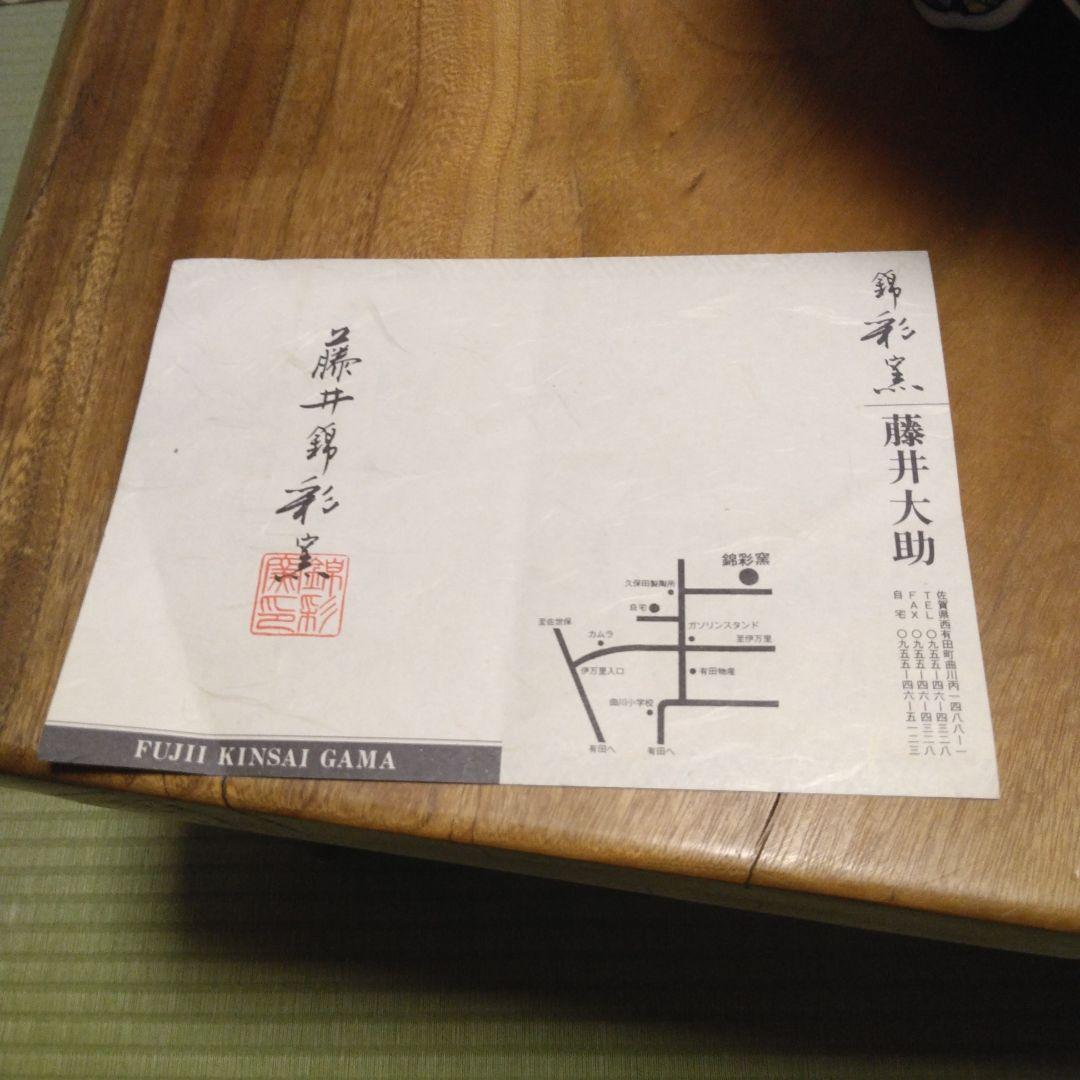 錦彩窯
藤井大助
佐賀県西有田町曲川丙一四八八ー一
TEL 〇九五五ー四六ー四三二八
FAX 〇九五五ー四六ー四三二八
自宅 〇九五五ー四六ー五一二三
錦彩窯
久保田製陶所
自宅
ガソリンスタンド
至佐世保
カムラ
至伊万里
伊万里入口
有田物産
曲川小学校
有田へ
有田へ
藤井錦彩窯
錦彩
窯印
FUJII KINSAI GAMA